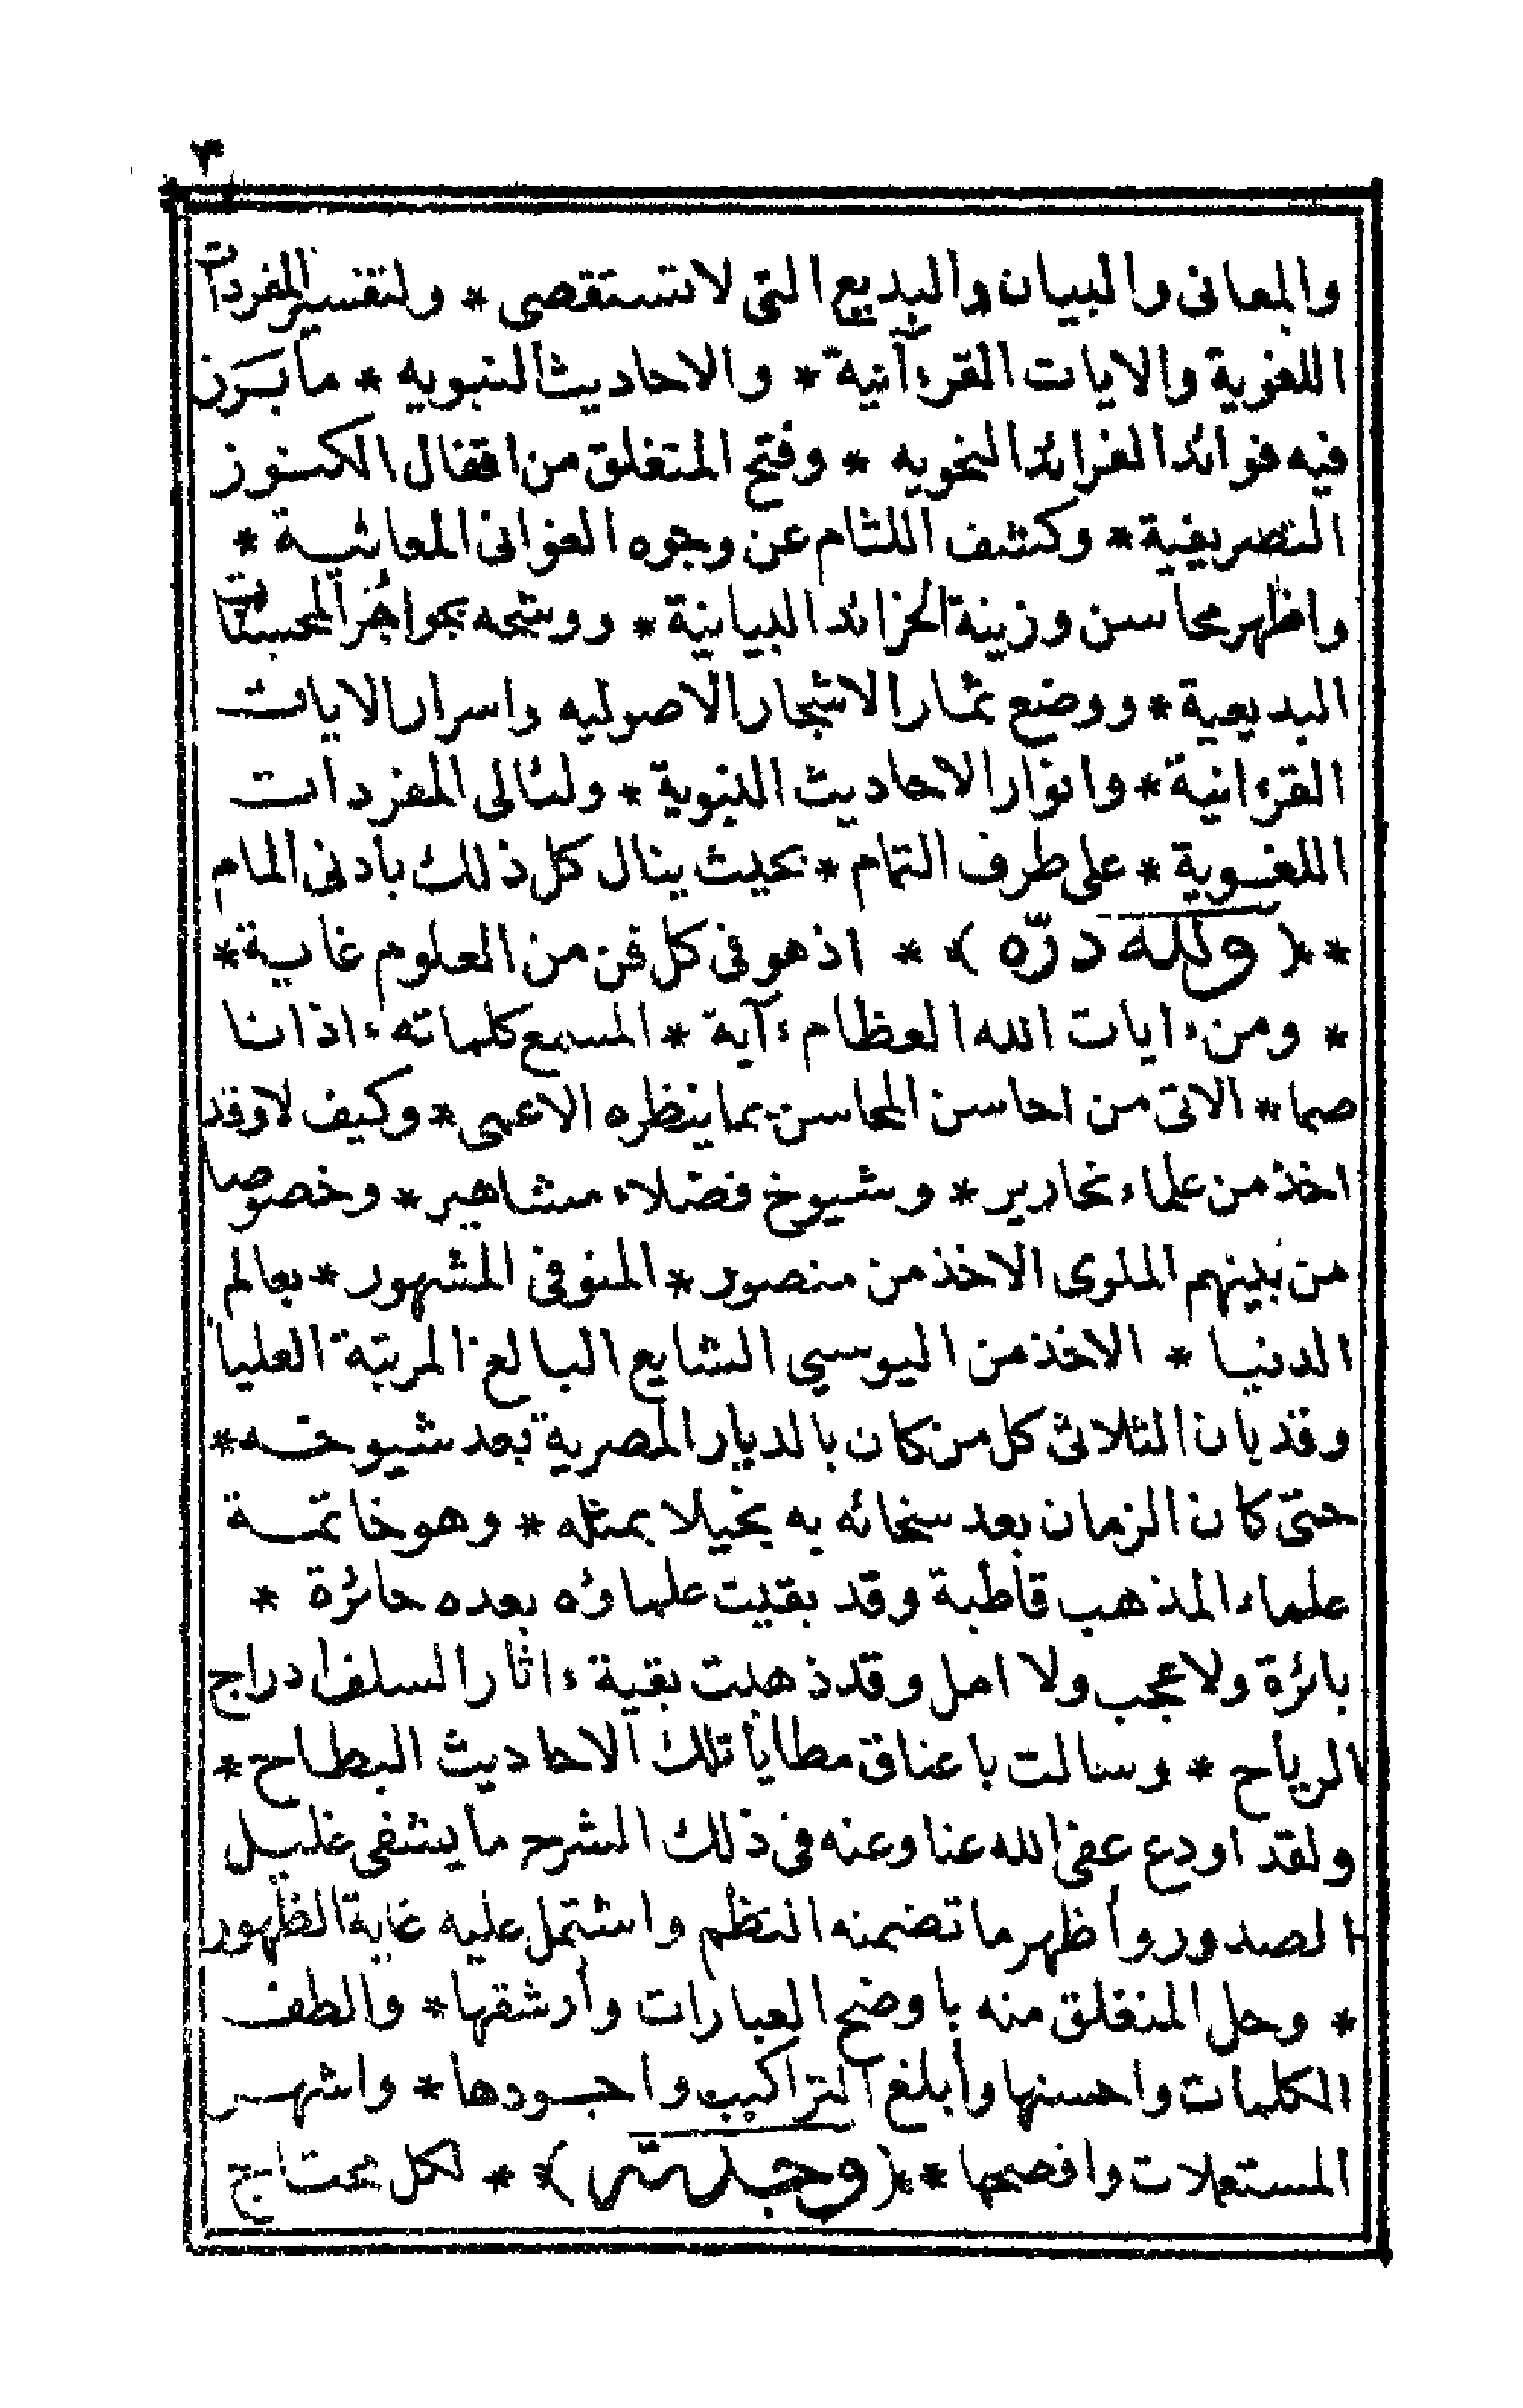 ٣
والمعانى والبيان والبديع التى لا تستقصى * ولتفسير المفردات
اللغوية والايات القرءآنية * والاحاديث النبويه * ما بَرَز
فيه فوائد الفرائد النحويه * وفتح المتغلق من اقفال الكنوز
التصريفية * وكشف اللثام عن وجوه الغوانى المعانية *
واظهر محاسن وزينة الخرائد البيانية * ووشحه بجواهر المحسنات
البديعية * ووضع ثمار الاشجار الاصوليه واسرار الايات
القرءانية * وانوار الاحاديث النبوية * ولئالى المفردات
اللغوية * على طرف التمام * بحيث ينال كل ذلك بادنى المام
* *(ولله درّه)* * اذ هو فى كل فن من العلوم غاية *
* ومن ءايات الله العظام ءآية * المسمع كلماته ءاذانا
صما * الاتى من احاسن المحاسن بما ينظره الاعمى * وكيف لا وقد
اخذ من علماء نحارير * وشيوخ فضلاء مشاهير * وخصوصا
من بينهم الملوى الاخذ من منصور * المنوفى المشهور * بعالم
الدنيا * الاخذ من اليوسى الشايع البالغ المرتبة العليا
وقد بان الثلاثى كل من كان بالديار المصرية بعد شيوخه *
حتى كان الزمان بعد سخائه به بخيلا بمثله * وهو خاتمة
علماء المذهب قاطبة وقد بقيت علماؤه بعده حائرة *
بائرة ولا عجب ولا امل وقد ذهبت بقية ءاثار السلف ادراج
الرياح * وسالت باعناق مطايا تلك الاحاديث البطاح *
ولقد اودع عفى الله عنا وعنه فى ذلك الشرح ما يشفى غليل
الصدور وأظهر ما تضمنه النظم واشتمل عليه غاية الظهور
* وحل المنغلق منه باوضح العبارات وأرشقها * والطف
الكلمات واحسنها وأبلغ التراكيب واجودها * واشهر
المستعملات وافصحها * *( )* * لكل محتاج